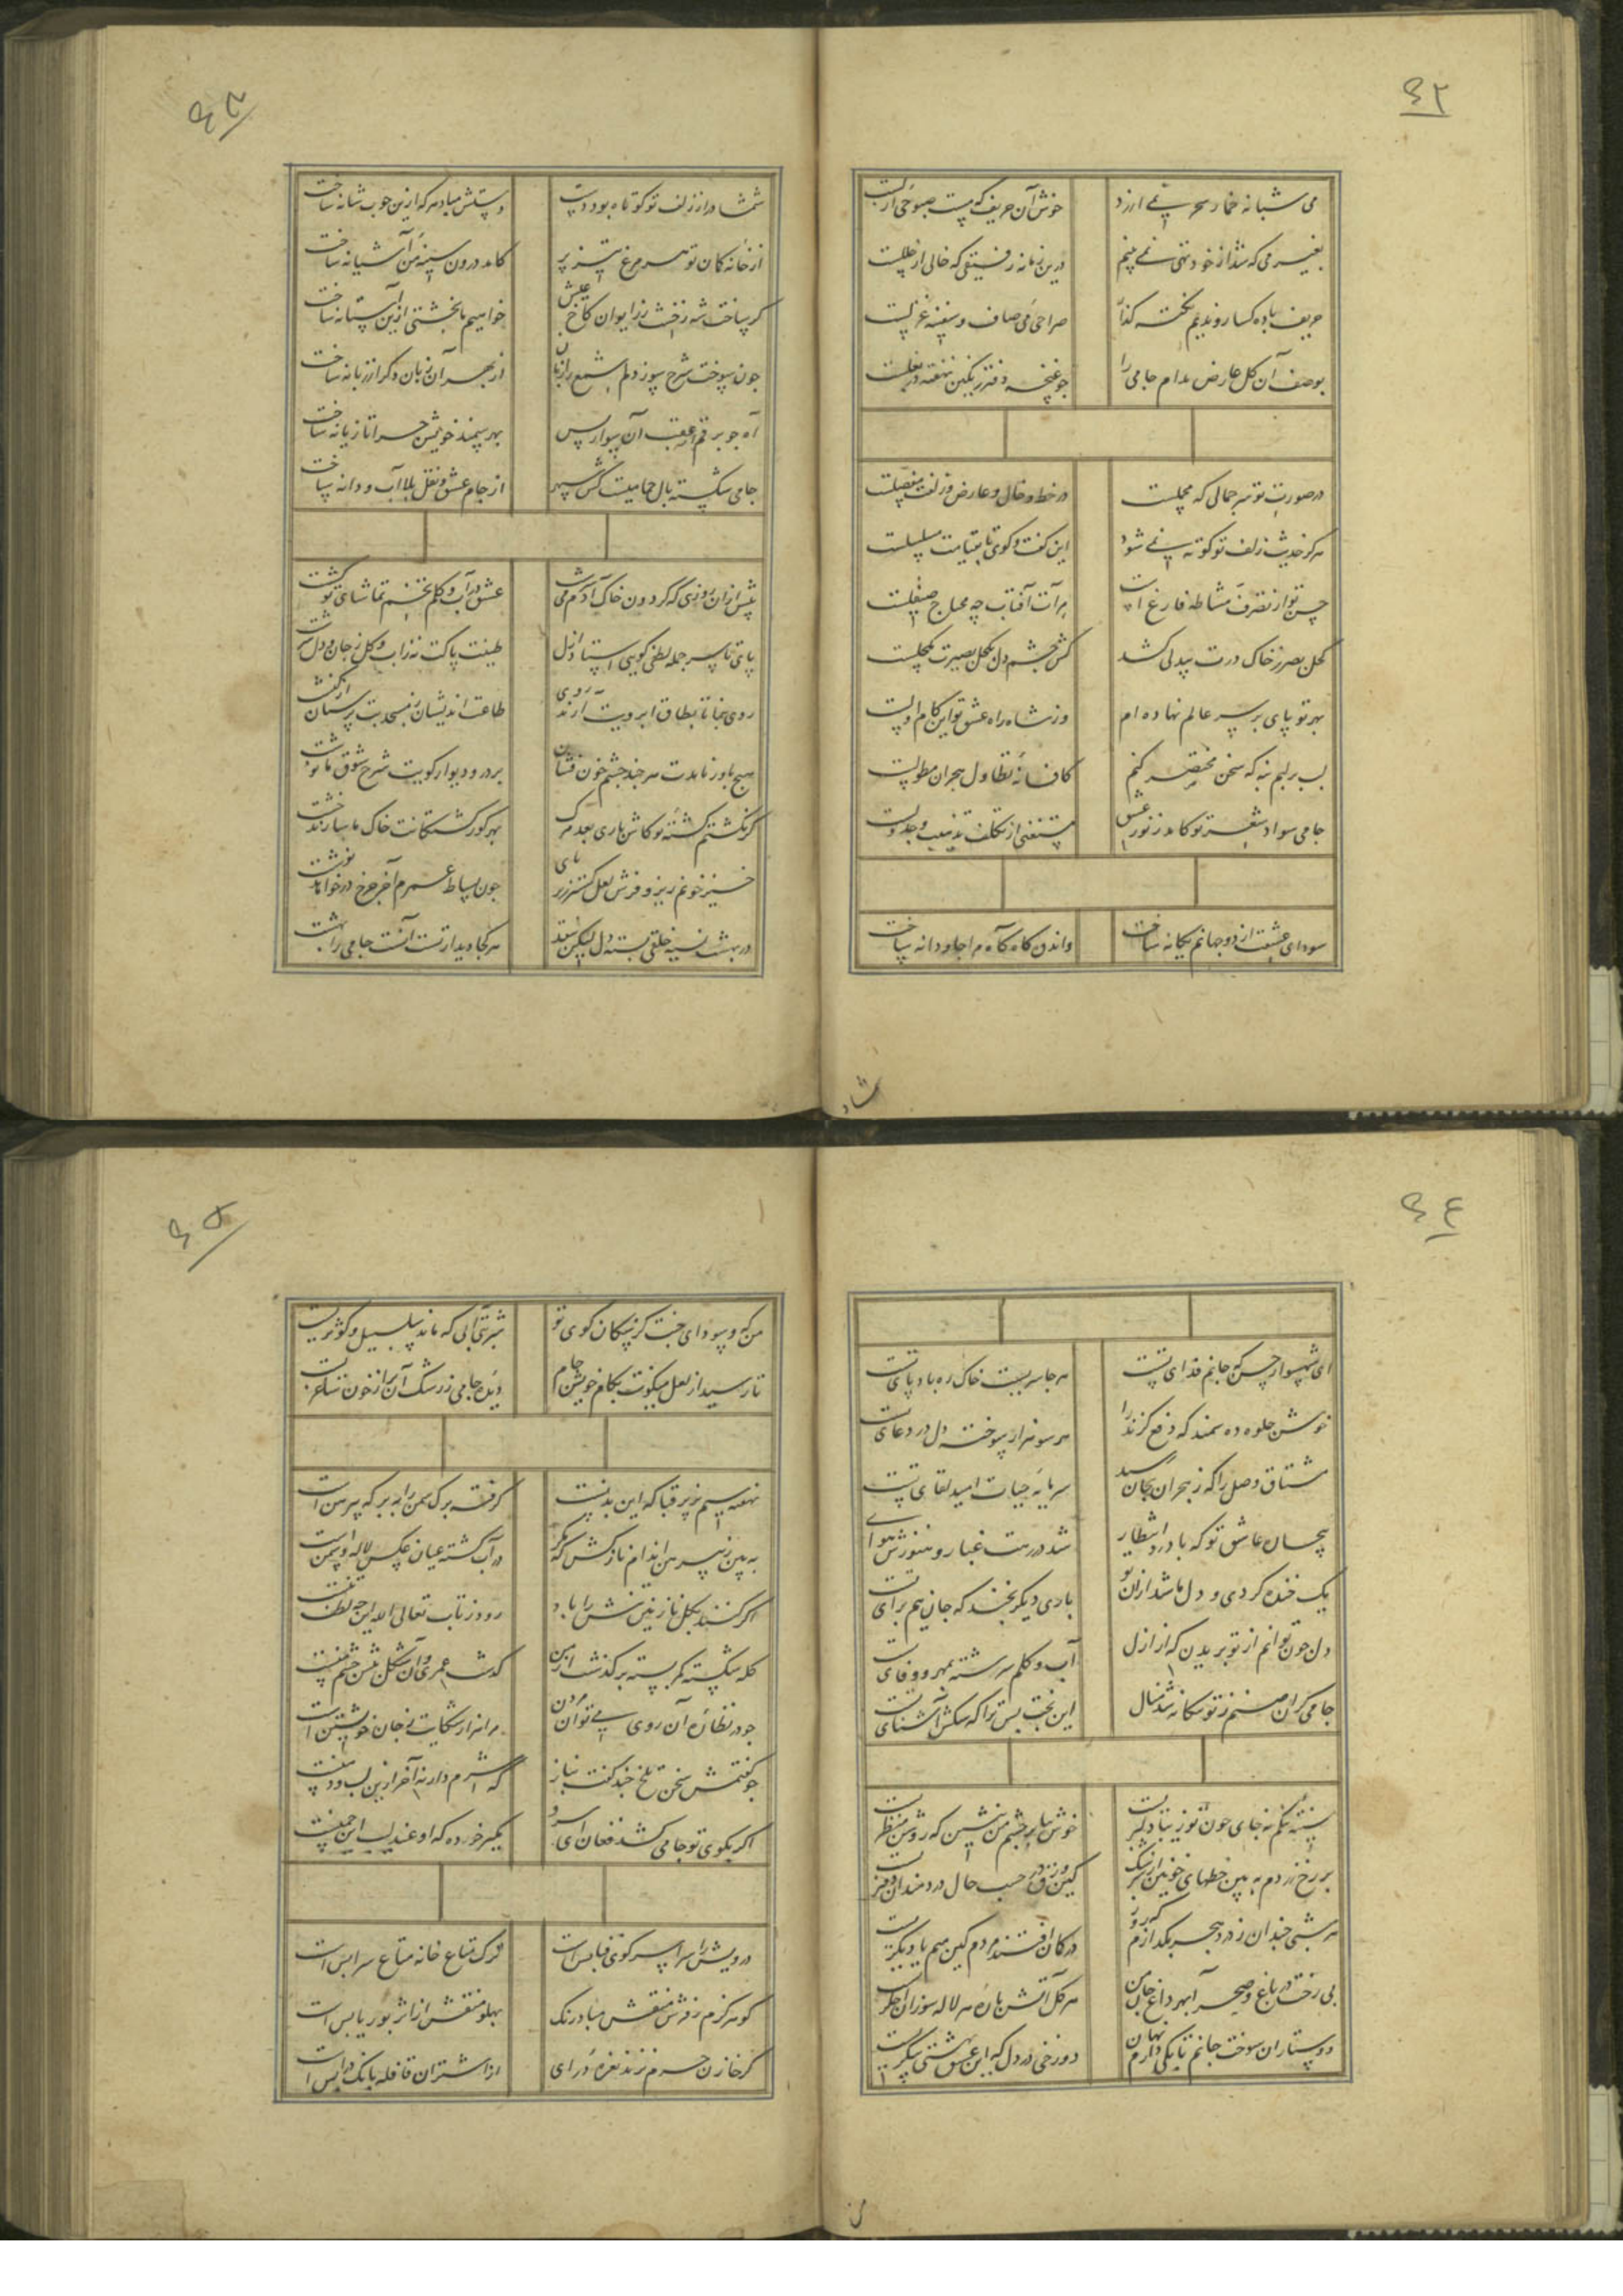 ٤٢
می شبانه خمار سحر نمی ارزد خوش آن حریف که مست صبوحی ازلست
بغیر می که شد از خود تهی نمی بینم درین زمانه رفیقی که خالی از خللست
حریف باده کسارو ندیم نکته گذار صراحی می صاف و سفینه غزلست
بوصف آن گل عارض مدام جامی را جو غنچه دفتر رنکین نهفته در بغلست
در صورت تو سر جمالی که مجملست در خط و خال و عارض و زلفت مفصلست
هرکز حدیث زلف تو کوته نمی شود این کفت و کوی تا بقیامت مسلسلست
حسن تو از تصرف مشاطه فارغ است مرآت آفتاب چه محتاج صیقلست
کحل بصر ز خاک درت بیدلی کشد کش چشم دل بکحل بصیرت مکحلست
بهر تو پای بر سر عالم نهاده ام وز شاه راه عشق تو این کام اولست
لب بر لبم بنه که سخن مختصر کنم کافسانه تطاول هجران مطولست
جامی سواد شعر تو کامد ز نور عشق مستغنی از تکلف تذهیب و جدولست
سودای عشقت از دو جهانم یکانه ساخت واندوه کاه کاه مرا جاودانه ساخت
شمشاد
٤٣
شمشاد را ز زلف تو کوتاه بود دست دستش مباد هر که ازین جوب شانه ساخت
از خانه کمان تو هر مرغ تیز پر کامد درون سینه من آشیانه ساخت
کر ساخت شه ز خشت زر ایوان کاخ عیش خواهیم ما بخشتی ازین آستانه ساخت
جون سوخت شرح سوز دلم شمع را زبان از بهر آن زبان دکر از زبانه ساخت
آه جو برقم از عقب آن سوار بس بهر سمند خویشتن جرا تازیانه ساخت
جامی شکسته بال حمامیست کش سپهر از جام عشق و نقل بلا آب و دانه ساخت
پیش ازان روزی که کردون خاک آدم می سرشت عشق در آب و کلم تخم تمنای تو کشت
پای تا سر جمله لطفی کویی استاد ازل طینت پاکت نه زاب و کل ز جان و دل سرشت
روی بنما تا بطاق ابرویت آرند روی طاعت اندیشان ز مسجد بت پرستان از کنشت
هیچ باور نایدت هر جند جشم خون فشان بر در و دیوار کویت شرح شوق ما نوشت
کر نکشتم کشته تو کاش باری بعد مرک بهر کور کشتکانت خاک ما سازند خشت
خیز خونم ریز و فرش لعل کستر زیر پای جون بساط عمرم آخر جرخ در خواهد نوشت
در بهشت نسیه خلقی بسته دل لیکن نقد هر کجا دیدار تست آنست جامی را بهشت
٤٤
ای شهسوار حسن که جانم فدای تست هر جا سریست خاک ره باد پای تست
خوش جلوه ده سمند که دفع کزند را هر سو هزار سوخته دل در دعای تست
مشتاق وصل را که ز هجران بجان رسید سرمایه حیات امید لقای تست
بیجان عاشق تو که باد در انتظار شد در رهت غبار و هنوزش هوای تست
یک خنده کردی و دل ما شد ازان تو باری دیکر بخند که جان هم برای تست
دل جون توانم از تو بریدن که از ازل آب و کلم سرشته بمهر و وفای تست
جامی کر آن صنم ز تو بیکانه شد منال این بخت بس ترا که سکش آشنای تست
سینه تنکم نه جای جون تو زیبا دلبریست خوش بیا بر چشم من بنشین که روشن منظریست
بر رخ زردم به بین خطهای خونین از سرشک کین ورق در حسب حال دردمندان دفتریست
هر شبی جندان ز درد هجر بکدازم که روز در کمان افتند مردم کین هم یا دیکریست
بی رخت در باغ و صحرا بهر داغ جان من هر کل آتش پاره هر لاله سوزان اخکریست
دوستاران سوخت جانم تا یکی دارم نهان دوزخی در دل که این عشق بهشتی پیکریست
من
٤٥
من که و سودای جنت کز سکان کوی تو شربتی آبی که ماند سلسبیل و کوثریست
تا رسید از لعل میکونت بکام خویش جام دیده جامی ز رشک آن بر از خون ساغریست
نهفته سیم بزیر قبا که این بدنست کرفته برک سمن را ببر که پیرهن است
به بین ز پیرهن اندام نازکش که مکر در آب کشته عیان عکس لاله و سمن است
اکر کنند بکل نازنین تنش را باد رود ز تاب تعالی الله این چه لطف تنست
کله شکسته کمر بسته بر کذشت از من کذشت عمری و آن شکل پیش چشم منست
جو در نظاره آن روی می توان مردن مرا هزار شکایت ز جان خویشتن است
جو کفتمش سخن تلخ جند کفت بناز که شرم دار نه آخر ازین لب و دهنست
اکر بکوی تو جامی کشد فغان ای سرو مکیر خرده که او عندلیب این چمنست
درویش را سرا سر کوی فنا بس است ترک متاع خانه متاع سرا بس است
کو هرکزم ز فرش منقش مباد رنک پهلو منقش از اثر بوریا بس است
کر خازن حرم نزند نعره درای از اشتران قافله بانک درا بس است